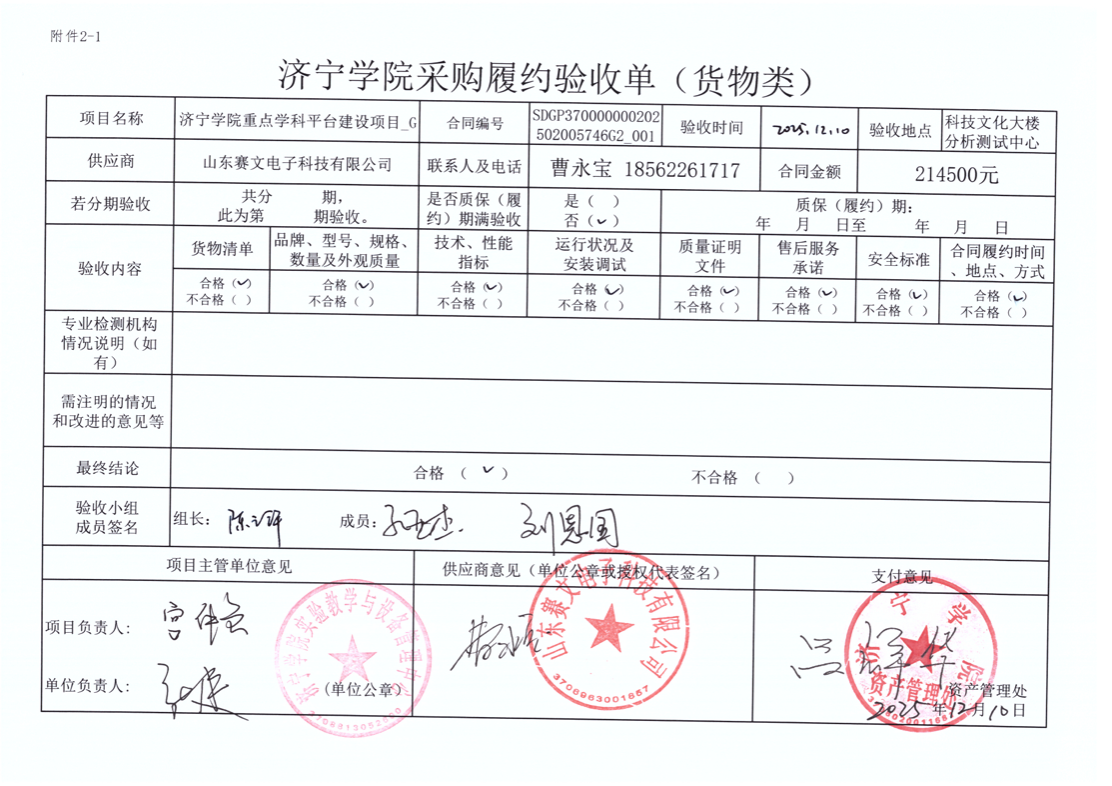 附件2-1
济宁学院采购履约验收单（货物类）
项目名称
济宁学院重点学科平台建设项目_G
合同编号
SDGP370000000202
502005746G2_001
验收时间
2025.12.10
验收地点
科技文化大楼
分析测试中心
供应商
山东赛文电子科技有限公司
联系人及电话
曹永宝 18562261717
合同金额
214500元
若分期验收
共分 期，
此为第 期验收。
是否质保（履
约）期满验收
是（ ）
否（✓）
质保（履约）期：
年 月 日至 年 月 日
验收内容
货物清单
品牌、型号、规格、
数量及外观质量
技术、性能
指标
运行状况及
安装调试
质量证明
文件
售后服务
承诺
安全标准
合同履约时间
、地点、方式
合格（✓）
不合格（ ）
合格（✓）
不合格（ ）
合格（✓）
不合格（ ）
合格（✓）
不合格（ ）
合格（✓）
不合格（ ）
合格（✓）
不合格（ ）
合格（✓）
不合格（ ）
合格（✓）
不合格（ ）
专业检测机构
情况说明（如
有）
需注明的情况
和改进的意见等
最终结论
合格 （ ✓ ）
不合格 （ ）
验收小组
成员签名
组长：
成员：
刘恩国
项目主管单位意见
供应商意见（单位公章或授权代表签名）
支付意见
项目负责人：
单位负责人：
（单位公章）
济宁学院实验教学与设备管理中心
山东赛文电子科技有限公司
3708963001657
济宁学院
资产管理处
资产管理处
2025年12月10日